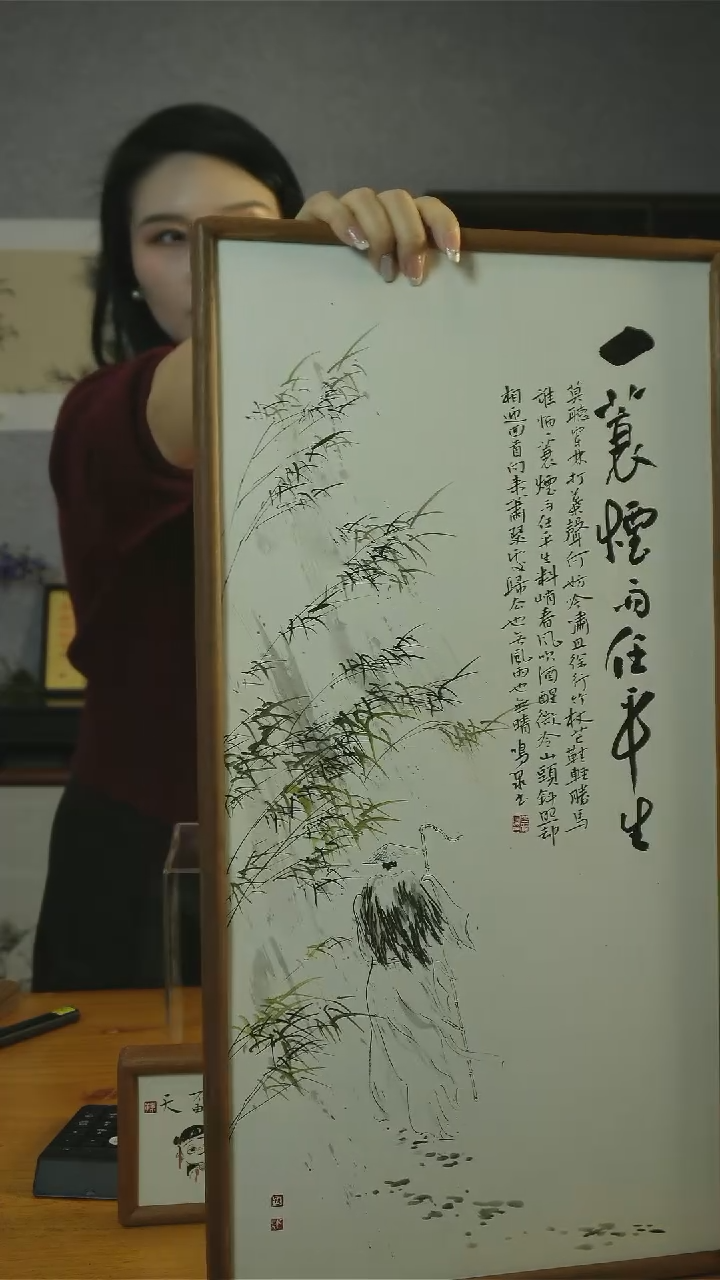 一蓑煙雨任平生
莫聽穿林打葉聲何妨吟嘯且徐行竹杖芒鞋輕勝馬
誰怕一蓑煙雨任平生料峭春風吹酒醒微冷山頭斜照却
相迎回首向来蕭瑟處歸去也无風雨也無晴
天